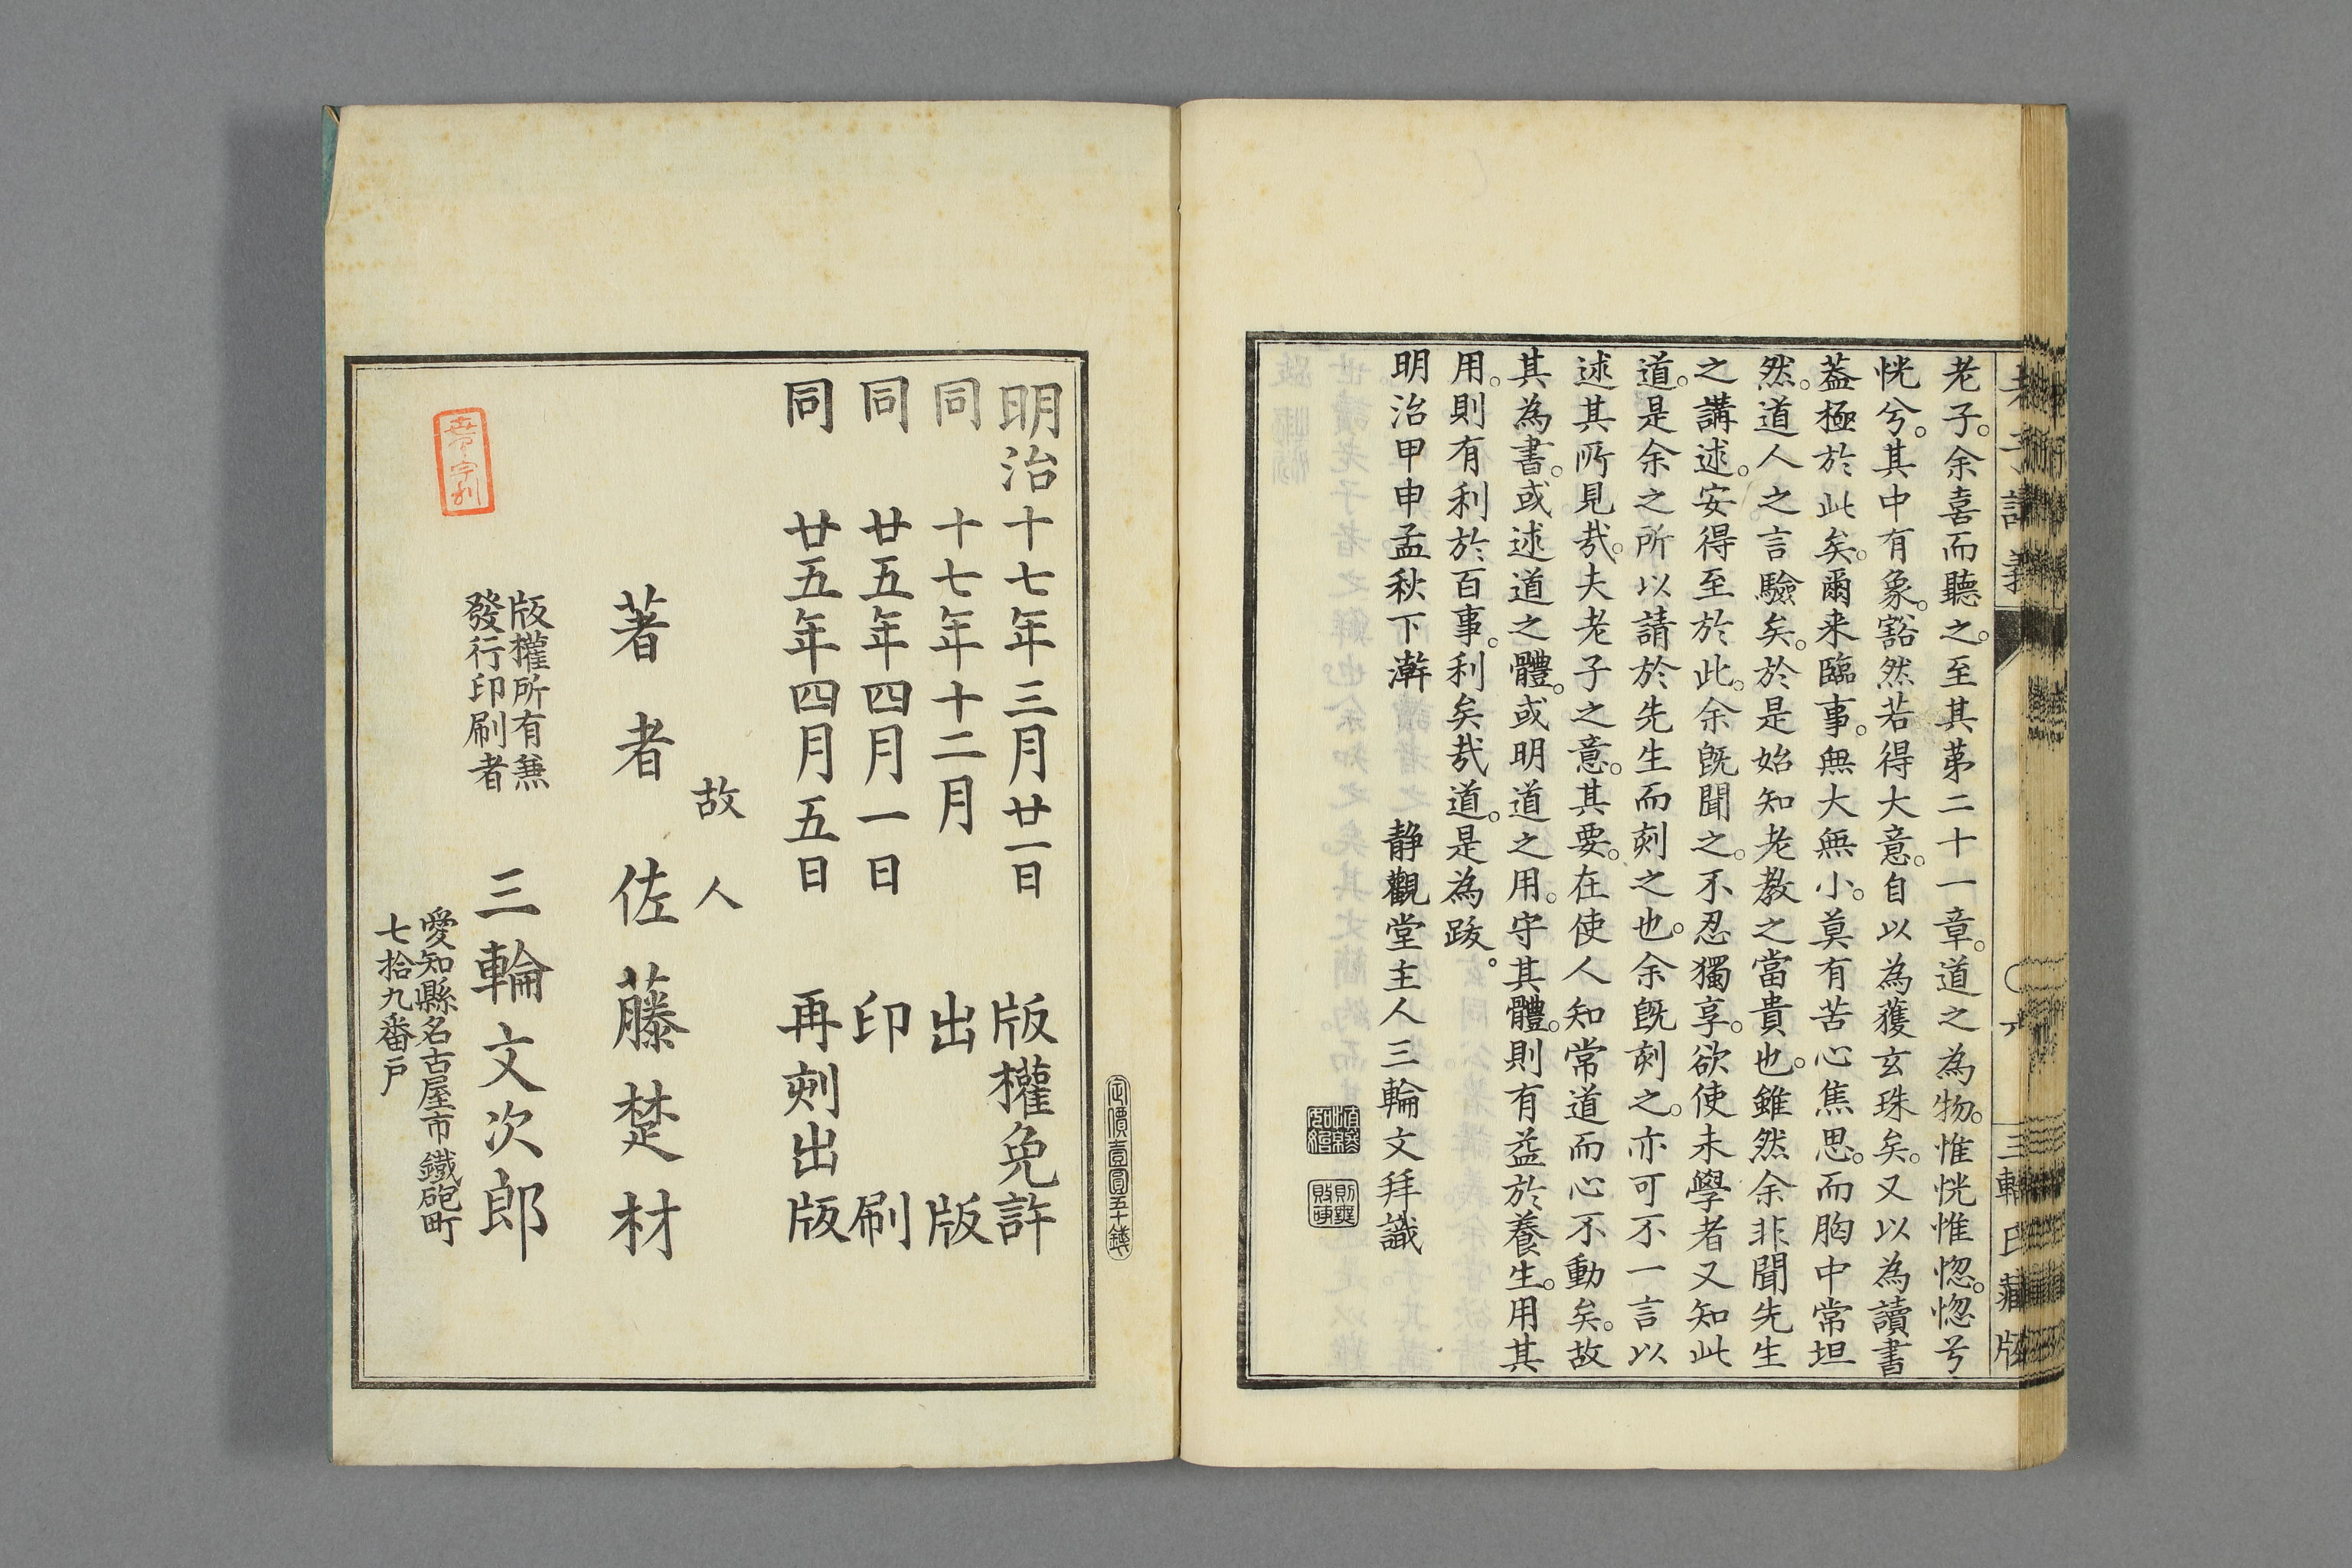 老子。余喜而聽之。至其苐二十一章。道之為物。惟恍惟惚。惚兮
恍兮。其中有象。豁然若得大意。自以為獲玄珠矣。又以為讀書
葢極於此矣。爾来臨事。無大無小。莫有苦心焦思。而胸中常坦
然。道人之言驗矣。於是始知老教之當貴也。雖然余非聞先生
之講述。安得至於此。余既聞之。不忍獨享。欲使未學者又知此
道。是余之所以請於先生而刻之也。余既刻之。亦可不一言以
述其所見哉。夫老子之意。其要。在使人知常道而心不動矣。故
其為書。或述道之體。或明道之用。守其體。則有益於養生。用其
用。則有利於百事。利矣哉道。是為跋。
明治甲申孟秋下澣
静觀堂主人三輪文拜識
三輪氏藏版
定價壹圓五十錢
明治十七年三月廿一日 版權免許
同 十七年十二月 出版
同 廿五年四月一日 印刷
同 廿五年四月五日 再刻出版
故人
著者 佐藤楚材
版權所有兼
發行印刷者
三輪文次郎
愛知縣名古屋市鐵砲町
七拾九番戸